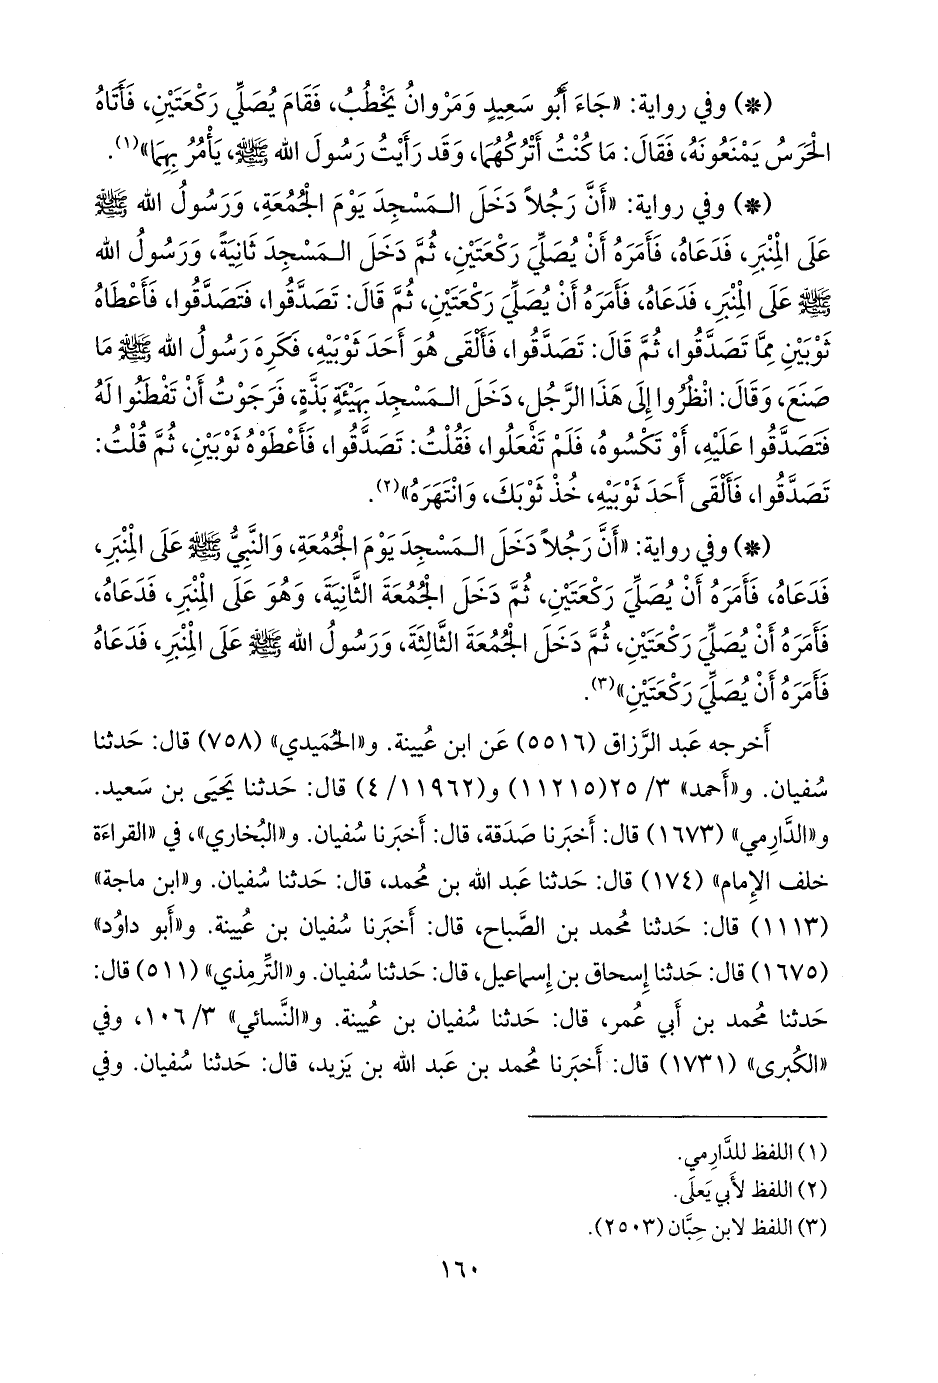 (*) وفي رواية: «جَاءَ أَبُو سَعِيدٍ وَمَرْوَانُ يَخْطُبُ، فَقَامَ يُصَلِّي رَكْعَتَيْنِ، فَأَتَاهُ
الْحَرَسُ يَمْنَعُونَهُ، فَقَالَ: مَا كُنْتُ أَتْرُكُهُمَا، وَقَد رَأَيْتُ رَسُولَ الله ﷺ، يَأْمُرُ بِهِمَا»(١).
(*) وفي رواية: «أَنَّ رَجُلاً دَخَلَ الـمَسْجِدَ يَوْمَ الْجُمُعَةِ، وَرَسُولُ الله ﷺ
عَلَى الْمِنْبَرِ، فَدَعَاهُ، فَأَمَرَهُ أَنْ يُصَلِّيَ رَكْعَتَيْنِ، ثُمَّ دَخَلَ الـمَسْجِدَ ثَانِيَةً، وَرَسُولُ الله
ﷺ عَلَى الْمِنْبَرِ، فَدَعَاهُ، فَأَمَرَهُ أَنْ يُصَلِّيَ رَكْعَتَيْنِ، ثُمَّ قَالَ: تَصَدَّقُوا، فَتَصَدَّقُوا، فَأَعْطَاهُ
ثَوْبَيْنِ مِمَّا تَصَدَّقُوا، ثُمَّ قَالَ: تَصَدَّقُوا، فَأَلْقَى هُوَ أَحَدَ ثَوْبَيْهِ، فَكَرِهَ رَسُولُ الله ﷺ مَا
صَنَعَ، وَقَالَ: انْظُرُوا إِلَى هَذَا الرَّجُلِ، دَخَلَ الـمَسْجِدَ بِهَيْئَةٍ بَذَّةٍ، فَرَجَوْتُ أَنْ تَفْطَنُوا لَهُ
فَتَصَدَّقُوا عَلَيْهِ، أَوْ تَكْسُوهُ، فَلَمْ تَفْعَلُوا، فَقُلْتُ: تَصَدَّقُوا، فَأَعْطَوْهُ ثَوْبَيْنِ، ثُمَّ قُلْتُ:
تَصَدَّقُوا، فَأَلْقَى أَحَدَ ثَوْبَيْهِ، خُذْ ثَوْبَكَ، وَانْتَهَرَهُ»(٢).
(*) وفي رواية: «أَنَّ رَجُلاً دَخَلَ الـمَسْجِدَ يَوْمَ الْجُمُعَةِ، وَالنَّبِيُّ ﷺ عَلَى الْمِنْبَرِ،
فَدَعَاهُ، فَأَمَرَهُ أَنْ يُصَلِّيَ رَكْعَتَيْنِ، ثُمَّ دَخَلَ الْجُمُعَةَ الثَّانِيَةَ، وَهُوَ عَلَى الْمِنْبَرِ، فَدَعَاهُ،
فَأَمَرَهُ أَنْ يُصَلِّيَ رَكْعَتَيْنِ، ثُمَّ دَخَلَ الْجُمُعَةَ الثَّالِثَةَ، وَرَسُولُ الله ﷺ عَلَى الْمِنْبَرِ، فَدَعَاهُ
فَأَمَرَهُ أَنْ يُصَلِّيَ رَكْعَتَيْنِ»(٣).
أَخرجه عَبد الرَّزاق (٥٥١٦) عَن ابن عُيينة. و«الحُمَيدي» (٧٥٨) قال: حَدثنا
سُفيان. و«أَحمد» ٣/ ٢٥(١١٢١٥) و(١١٩٦٢/ ٤) قال: حَدثنا يَحيَى بن سَعيد.
و«الدَّارِمي» (١٦٧٣) قال: أَخبَرنا صَدَقة، قال: أَخبَرنا سُفيان. و«البُخاري»، في «القراءَة
خلف الإِمام» (١٧٤) قال: حَدثنا عَبد الله بن مُحمد، قال: حَدثنا سُفيان. و«ابن ماجة»
(١١١٣) قال: حَدثنا مُحمد بن الصَّباح، قال: أَخبَرنا سُفيان بن عُيينة. و«أَبو داوُد»
(١٦٧٥) قال: حَدثنا إِسحاق بن إِسماعيل، قال: حَدثنا سُفيان. و«التِّرمِذي» (٥١١) قال:
حَدثنا مُحمد بن أَبي عُمر، قال: حَدثنا سُفيان بن عُيينة. و«النَّسائي» ٣/ ١٠٦، وفي
«الكُبرى» (١٧٣١) قال: أَخبَرنا مُحمد بن عَبد الله بن يَزيد، قال: حَدثنا سُفيان. وفي
(١) اللفظ للدَّارِمي.
(٢) اللفظ لأَبي يَعلَى.
(٣) اللفظ لابن حِبَّان (٢٥٠٣).
١٦٠